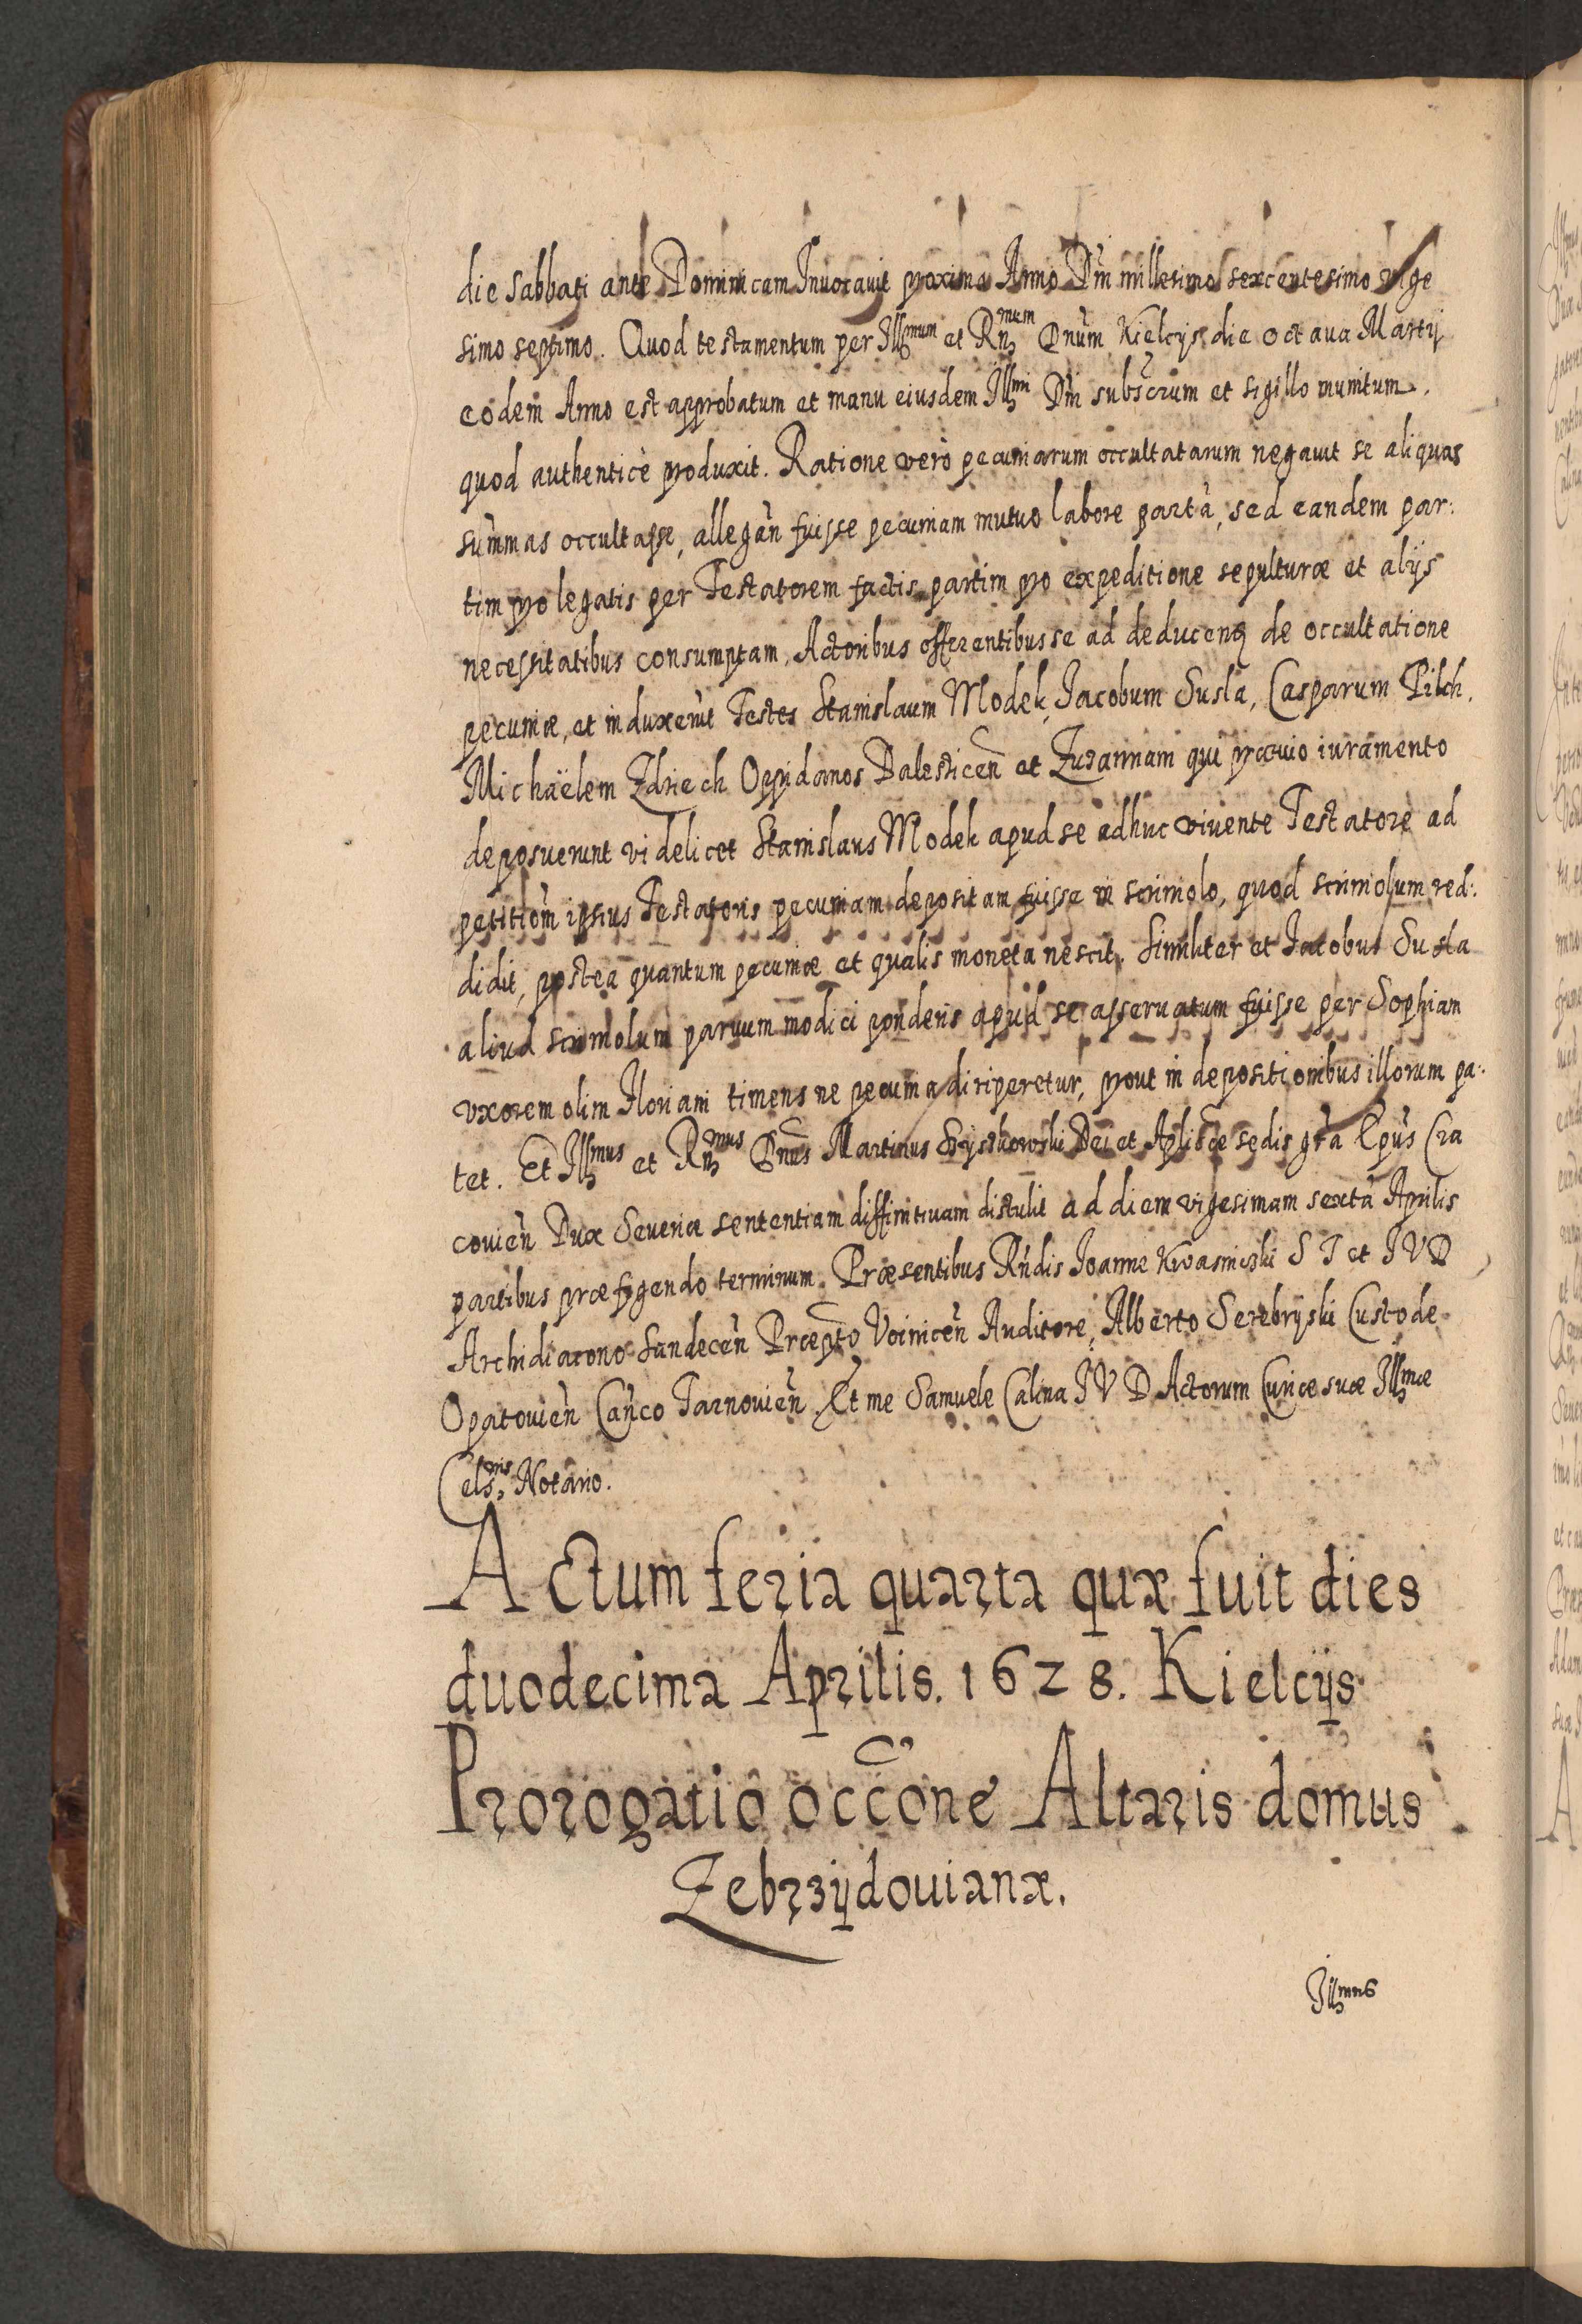 die Sabbati ante Dominicam Inuocauit proxima Anno Dni millesimo sexcentesimo vige
simo septimo. Quod testamentum per Illmum et Rnmum Dnum Kielcijs die octaua Martij
eodem Anno est approbatum et manu eiusdem Illmi Dni subscrum et sigillo munitum.
quod authenticè produxit. Ratione verò pecuniarum occultatarum negauit se aliquas
summas occultasse, allegàn fuisse pecuniam mutuo labore partà, sed eandem par:
tim pro legatis per Testatorem factis partim pro expeditione sepulturæ et alijs
necessitatibus consumptam, Actoribus offerentibus se ad deducenq de occultatione
pecuniæ, et induxerut Testes Stanislaum Modek, Jacobum Susla, Casparum Pilch,
Michaëlem Zdziech Oppidanos Dalesticen et Zuzannam qui præuio iuramento
deposuerunt videlicet Stanislaus Modek apud se adhuc viuente Testatore ad
petitiom ipsius Testatoris pecuniam depositam fuisse in scriniolo, quod scriniolum red:
didit, postea quantum pecuniæ et qualis moneta nescit. Similiter et Jacobus Susla
aliud scriniolum paruum modici ponderis apud se asseruatum fuisse per Sophiam
vxorem olim Floriani timens ne pecunia diriperetur, prout in depositionibus illorum pa:
tet. Et Illmus et Rnmus Dnus Martinus Szyszkowski Dei et Aplicæ sedis gra Epus Cra
couien Dux Seueriæ sententiam diffinitiuam distulit ad diem vigesimam sextà Aprilis
partibus præfigendo terminum. Præsentibus Rndis Joanne Kwasnicski S T et I V D
Archidiacono Sandecen Præpto Voinicen Auditore, Alberto Serebryski Custode
Opatouien Canco Tarnouien Et me Samuele Calina I V D Actorum Curiæ suæ Illmæ
Celsnis Notario.
Actum feria quarta quæ fuit dies
duodecima Aprilis. 1628. Kielcijs
Prorogatio occone Altaris domus
Zebrzydouianæ.
Illmus